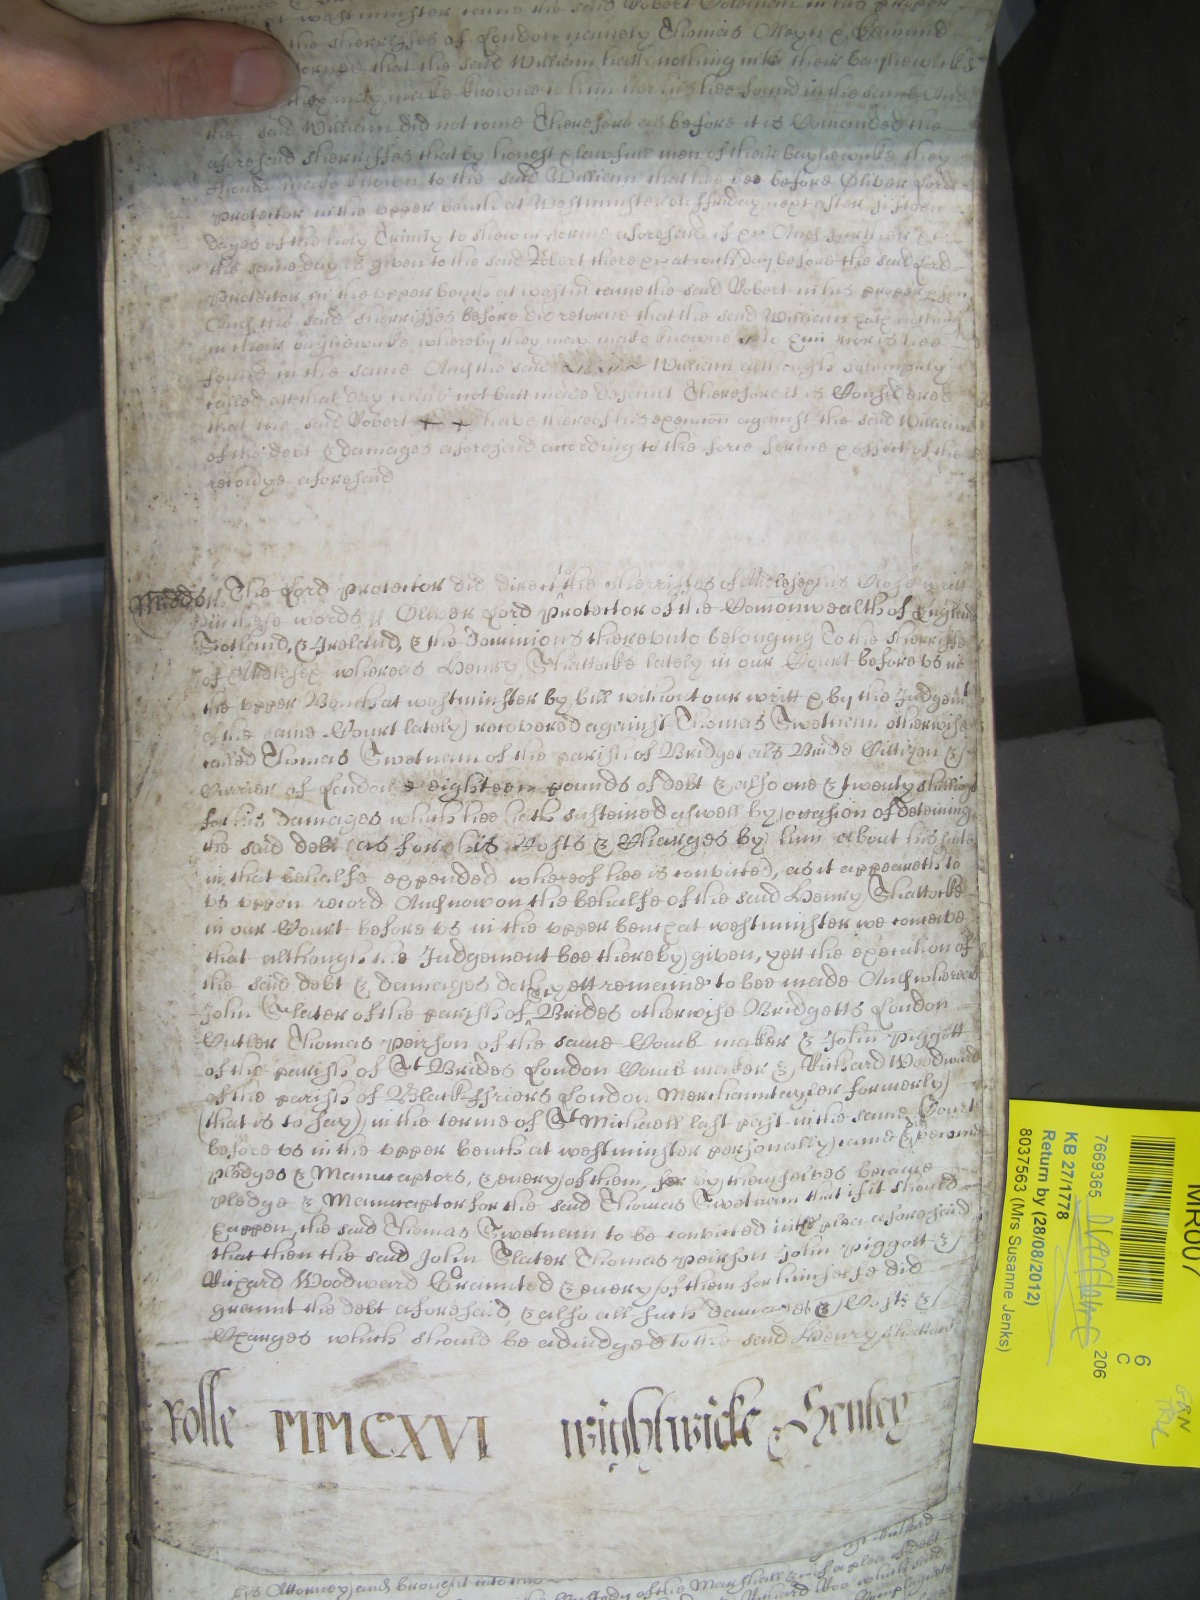 at westminster came the said Robert Coleman in his proper
the sherriffes of London namely Thomas Alleyn & Edmund
that the said William hath nothing in their bayliewicke
they may make knowne to him nor is hee found in the same And
the said William did not come Therefore as before it is Comanded the
aforesaid sherriffes that by honest & lawfull men of their bayliewicke they
should make known to the said William that hee bee before Oliver Lord
Protector in the upper bench at Westminster on ffriday next after fifteen
dayes of the holy Trinity to shew in forme aforesaid if &c And further &c
the same day is given to the said Robert there &c at which day before the said Lord
Protector in the upper bench at westm came the said Robert in his proper pson
And the said sherriffes as before did retorne that the said William hath nothing
in their bayliewicke whereby they may make knowne to him nor is hee
found in the same And the said William although solempnly
called att that day came not butt made default Therefore it is Considered
that the said Robert have thereof his execution against the said William
of the debt & damages aforesaid according to the force forme & effect of the
recovrye aforesaid
Midds The Lord Protector did direct to the sherriffes of Midlesex his Close writt
in these words Oliver Lord Protector of the Comonwealth of England
Scotland, & Ireland, & the Dominions thereunto belonging To the sherriffe
of Midlesex whereas Henry Shattocke lately in our Court before us in
the upper Bench at westminster by bill without our writt & by the Judgemt
of the same Court lately recovered against Thomas Swetnam otherwise
called Thomas Swetnam of the parish of Bridget als Bride Cittizen &
Currier of London eighteen pounds of debt & also one & twenty shillings
for his damages which hee hath susteined aswell by occasion of deteining
the said debt as for his Costs & Charges by him about his sute
in that behalfe expended whereof hee is convicted, as it appeareth to
us uppon record And now on the behalfe of the said Henry Shattocke
in our Court before us in the upper bench at westminster we conceive
that although the Judgement bee thereby given, yett the execution of
the said debt & damages doth yett remaine to bee made And whereas
John Slater of the parish of St Brides otherwise Bridgetts London
Cutler Thomas peirson of the same Comb maker & John Piggott
of the parish of St Brides London Comb maker & Richard Woodward
of the parish of Black ffriers London Merchauntayler formerly
(that is to say) in the terme of St Michaell last past in the same Court
before us in the upper bench at westminster personally came & became
pledges & Manucaptors, & every of them, by themselves became
pledge & Manucaptor for the said Thomas Swetnam that if it should
happen, the said Thomas Swetnam to be convicted in the plea aforesaid
that then the said John Slater Thomas peirson John Piggott &
Richard Woodward Graunted & every of them for himselfe did
graunt the debt aforesaid, & also all such damages & Costs &
Charges which should be adiudged to the said Henry Shattocke
Rolle MMCXVI Wightwicke & Henley
his Attorney and brought into
Custody of the Marshall
MR007
7669365
206
6
C
KB 27/1778
Return by (28/08/2012)
8037563 (Mrs Susanne Jenks)